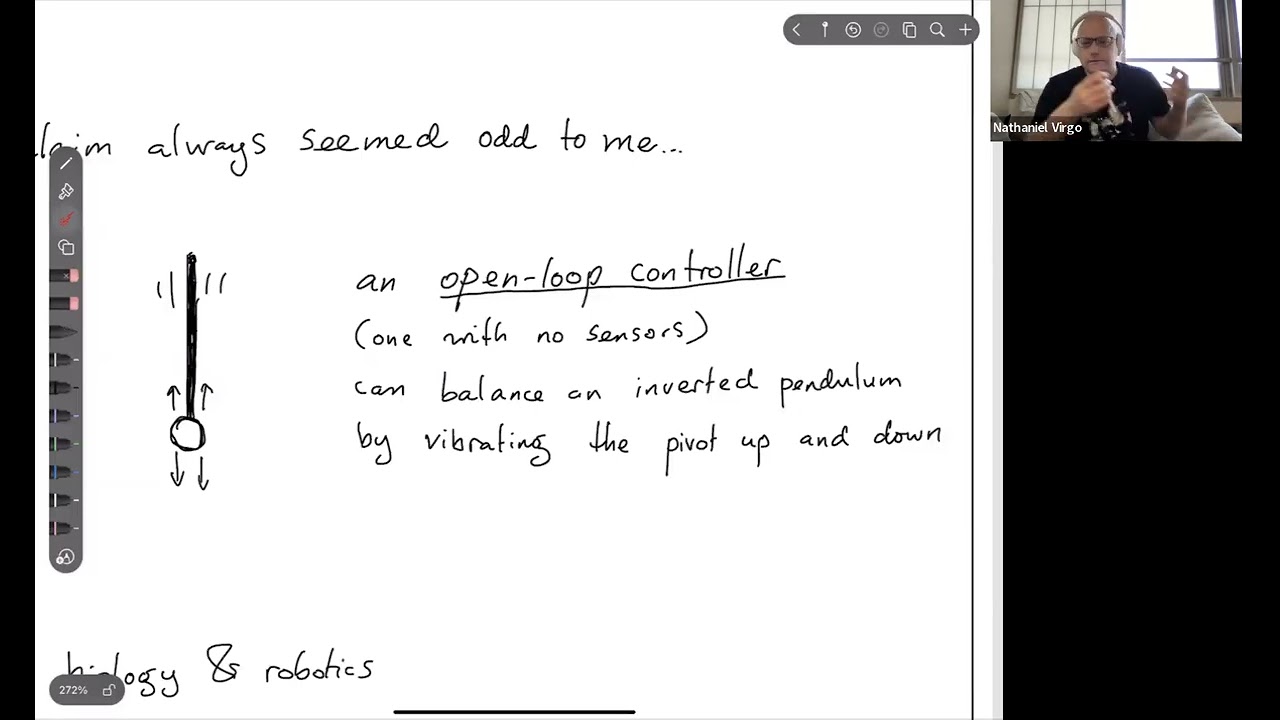 claim always seemed odd to me...
Nathaniel Virgo
an open-loop controller
(one with no sensors)
can balance an inverted pendulum
by vibrating the pivot up and down
biology & robotics
272%